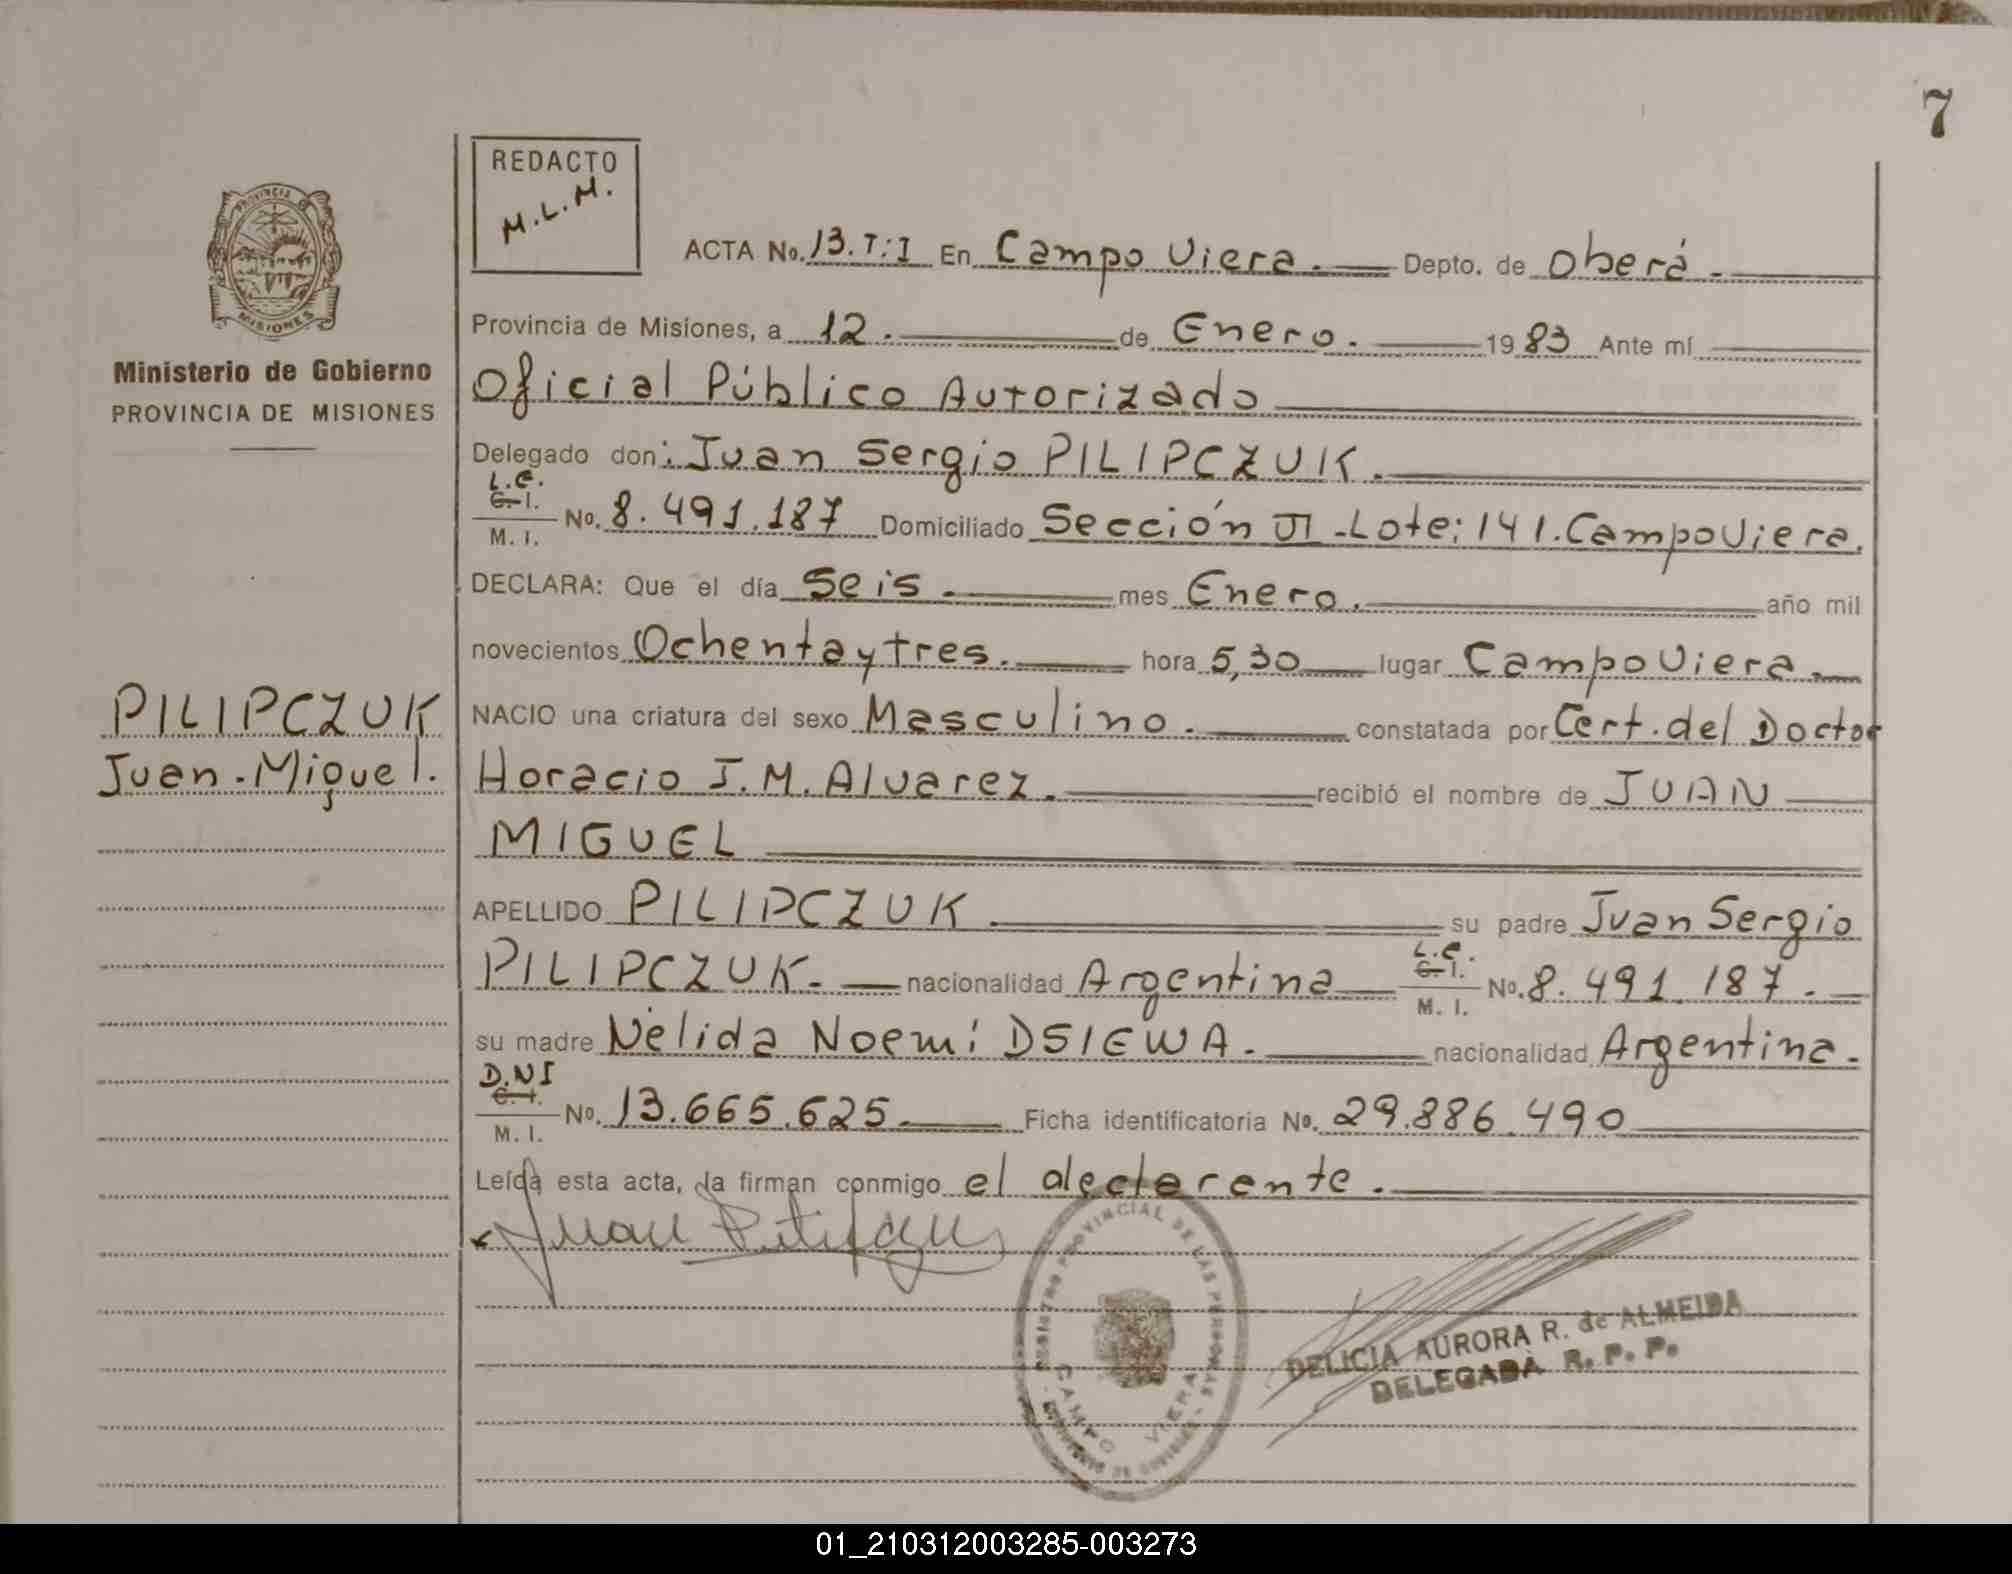 7
REDACTO
M.L.M.
PROVINCIA
MISIONES
Ministerio de Gobierno
PROVINCIA DE MISIONES
PILIPCZUK
Juan-Miguel.
ACTA No. 13.T:I En Campo Viera. Depto. de Oberá.
Provincia de Misiones, a 12. de Enero. 1983 Ante mí
Oficial Público Autorizado
Delegado don: Juan Sergio PILIPCZUK.
L.E.
C.I.
M. I. No. 8.491.187 Domiciliado Sección VI-Lote: 141. Campo Viera.
DECLARA: Que el día Seis. mes Enero. año mil
novecientos Ochenta y tres. hora 5,30 lugar Campo Viera.
NACIO una criatura del sexo Masculino. constatada por Cert. del Doctor
Horacio J.M. Alvarez. recibió el nombre de JUAN
MIGUEL
APELLIDO PILIPCZUK su padre Juan Sergio
PILIPCZUK. nacionalidad Argentina L.E. C.I. M. I. No. 8.491.187.
su madre Nélida Noemí DSIEWA. nacionalidad Argentina.
D.N.I
C.I.
M. I. No. 13.665.625 Ficha identificatoria No. 29.886.490
Leída esta acta, la firman conmigo el declarente.
REGISTRO PROVINCIAL DE LAS PERSONAS
CAMPO VIERA
DELICIA AURORA R. de ALMEIDA
DELEGADA R. P. P.
01_210312003285-003273